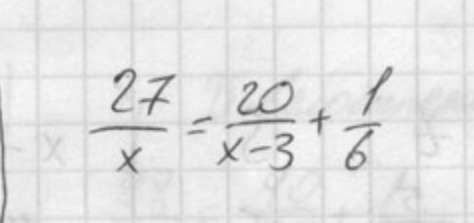 27/x = 20/(x-3) + 1/6